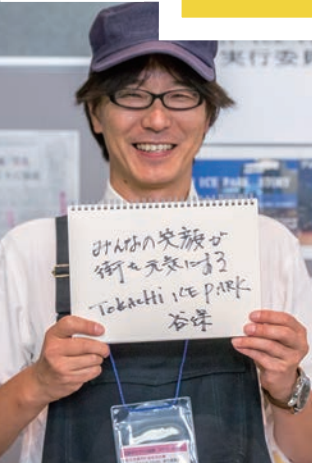 実行委員
ICE PARK STORY
みんなの笑顔が
街を元気にする
TOKACHI ICE PARK